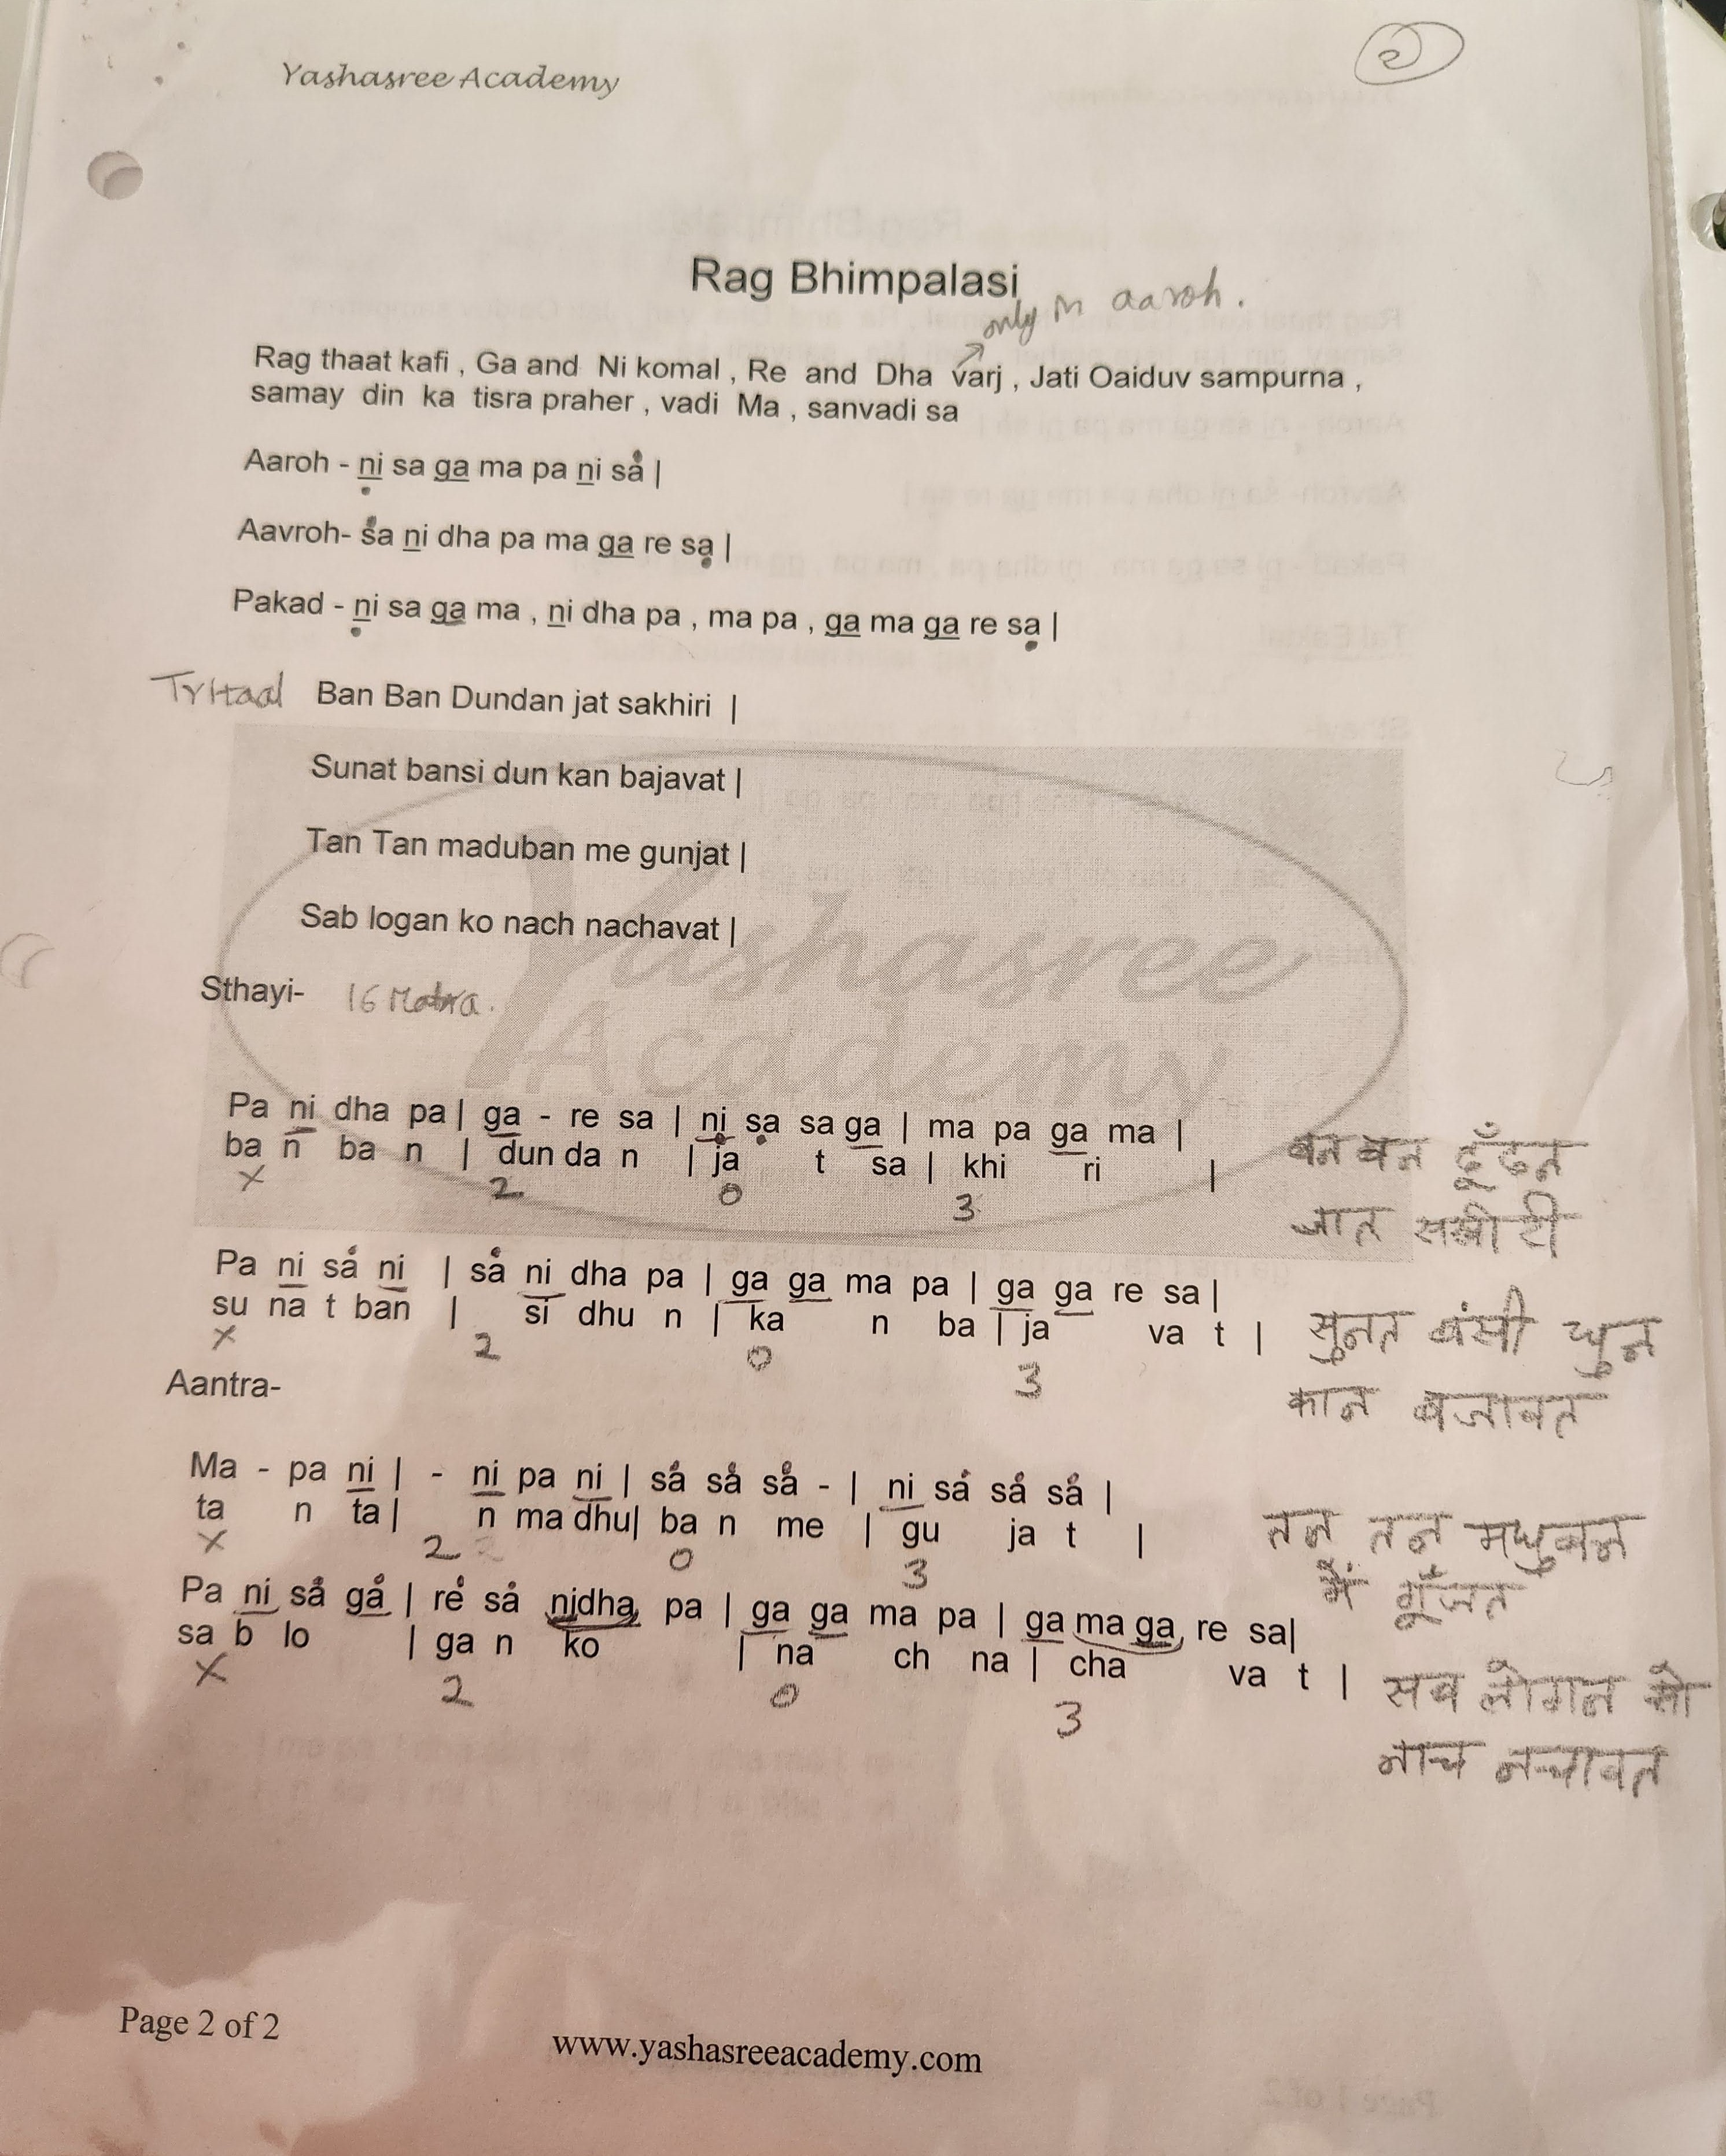 Yashasree Academy
2
Rag Bhimpalasi
only in aaroh.
Rag thaat kafi , Ga and Ni komal , Re and Dha varj , Jati Oaiduv sampurna ,
samay din ka tisra praher , vadi Ma , sanvadi sa
Aaroh - ni sa ga ma pa ni sa |
Aavroh- sa ni dha pa ma ga re sa |
Pakad - ni sa ga ma , ni dha pa , ma pa , ga ma ga re sa |
Tritaal Ban Ban Dundan jat sakhiri |
Sunat bansi dun kan bajavat |
Tan Tan maduban me gunjat |
Sab logan ko nach nachavat |
Yashasree
Academy
Sthayi- 16 Matra.
Pa ni dha pa | ga - re sa | ni sa sa ga | ma pa ga ma |
ba n ba n | dun da n | ja t sa | khi ri |
X 2 0 3
बन बन ढूँढन
जात सखी री
Pa ni sa ni | sa ni dha pa | ga ga ma pa | ga ga re sa |
su na t ban | si dhu n | ka n ba | ja va t |
X 2 0 3
सुनत बंसी धुन
कान बजावत
Aantra-
Ma - pa ni | - ni pa ni | sa sa sa - | ni sa sa sa |
ta n ta | n ma dhu| ba n me | gu ja t |
X 2 0 3
तन तन मधुबन
में गूँजत
Pa ni sa ga | re sa nidha pa | ga ga ma pa | ga ma ga re sa|
sa b lo | ga n ko | na ch na | cha va t |
X 2 0 3
सब लोगन को
नाच नचावत
Page 2 of 2
www.yashasreeacademy.com